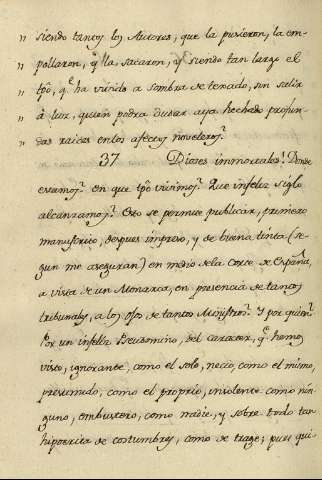 " siendo tantos los Autores, que la pusieron, la em-
" pollaron, q.e la sacaron, y siendo tan largo el
" tpõ, q.e ha vivido a sombra de texado, sin salir
" à luz, quien podra dudar aya hechado profun-
das raices en los afectos noveleros?
37 Dioses immortales! Donde
estamos? en que tpõ vivimos? Que infeliz siglo
alcanzamos? Esto se permite publicar, primero
manuscrito, despues impreso, y de buena tinta (se-
gun me aseguran) en medio de la Corte de España,
a vista de un Monarca, en presencia de tantos
tribunales, a los ojos de tantos Ministros? Y por quien?
Por un infeliz Pseudomino, del caracter, q.e hemos
visto, ignorante, como el solo, necio, como el mismo,
presumido, como el proprio, insolente como nin-
guno, embustero, como nadie, y sobre todo tan
hipocrita de costumbres, como de trage; pues qui-